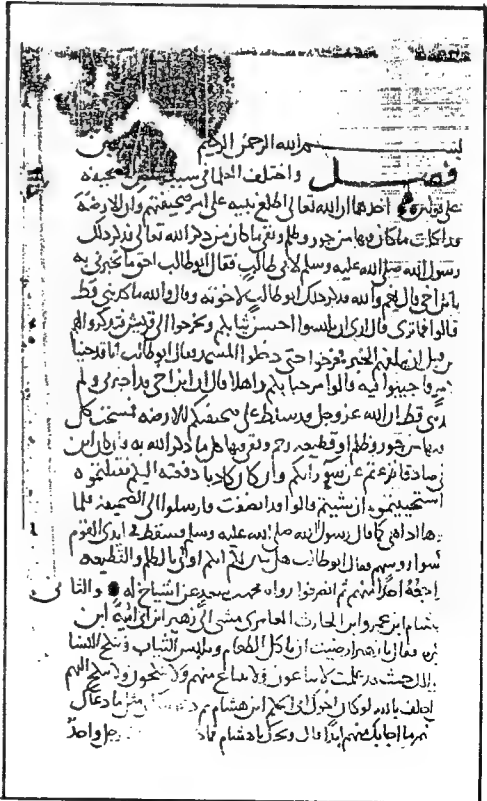 بسم الله الرحمن الرحيم
فصل واختلف العلما في سبب نقض الصحيفة
على قولين احدهما ان الله تعالى اطلع نبيه على امر صحيفتهم وان الارضة
قد اكلت ما كان فيها من جور وظلم وبقي ما كان من ذكر الله تعالى فذكر ذلك
رسول الله صلى الله عليه وسلم لابي طالب فقال ابو طالب احق ما تخبرني به
يا بن اخي قال نعم والله فذكر ذلك ابو طالب لاخوته وقال والله ما كذبني قط
قالوا فما ترى قال ارى ان تلبسوا احسن ثيابكم وتخرجوا الى قريش فتذكروا لهم
من قبل ان يبلغهم الخبر فخرجوا حتى دخلوا المسجد فقال ابو طالب انا قد جينا
فاجيبوا فيه قالوا مرحبا بكم واهلا قال ان ابن اخي قد اخبرني ولم
قط ان الله عز وجل قد سلط على صحيفتكم الارضة فمسحت كل
فيها من جور وظلم او قطيعة رحم وبقي فيها كل ما ذكر الله به فان كان ابن
صادقا نزعتم عن سو رايكم وان كان كاذبا دفعته اليكم فقتلتموه
استحييتموه ان شيتم قالوا قد انصفت فارسلوا الى الصحيفة فلما
اذا هي كما قال رسول الله صلى الله عليه وسلم فسقط في ايدي القوم
روسهم فقال ابو طالب هل لكم انكم اولى بالظلم والقطيعة
احد منهم ثم انصرفوا رواه محمد بن سعد عن اشياخ له والثاني
هشام ابن عمرو ابن الحارث العامري مشى الى زهير ابن ابي امية ابن
فقال يا زهير ارضيت ان تاكل الطعام وتلبس الثياب وتنكح النسا
حيث قد علمت لا يباعون ولا يبتاع منهم ولا ينكحون ولا ينكح اليهم
احلف بالله لو كان اخوال ابي الحكم ابن هشام ثم دعوته الى مثل ما دعاك
منهم ما اجابك منهم ابدا قال ويحك يا هشام رجل واحد